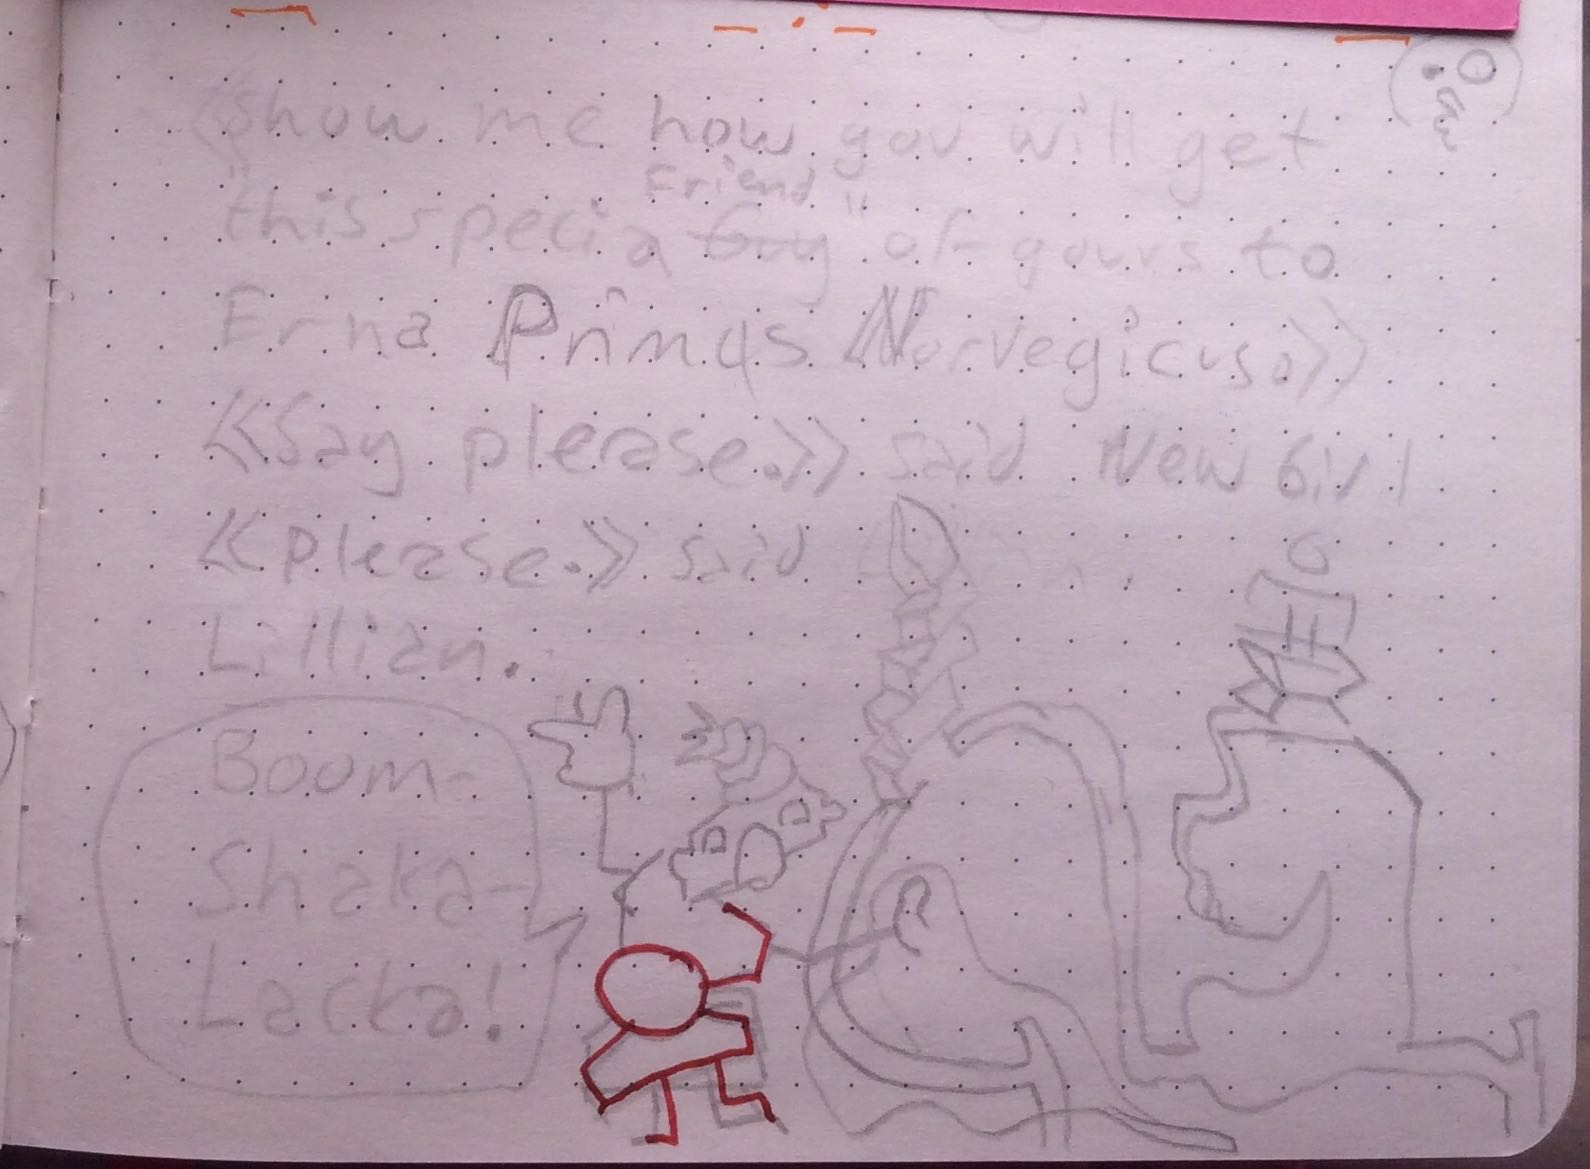 «show me how you will get
Friend
"this specia Guy" of yours to
Erna Primas Norvegicus.»
«Say please.» said New Girl
«please.» said
Lillian.
Boom-
Shaka-
Lacka!